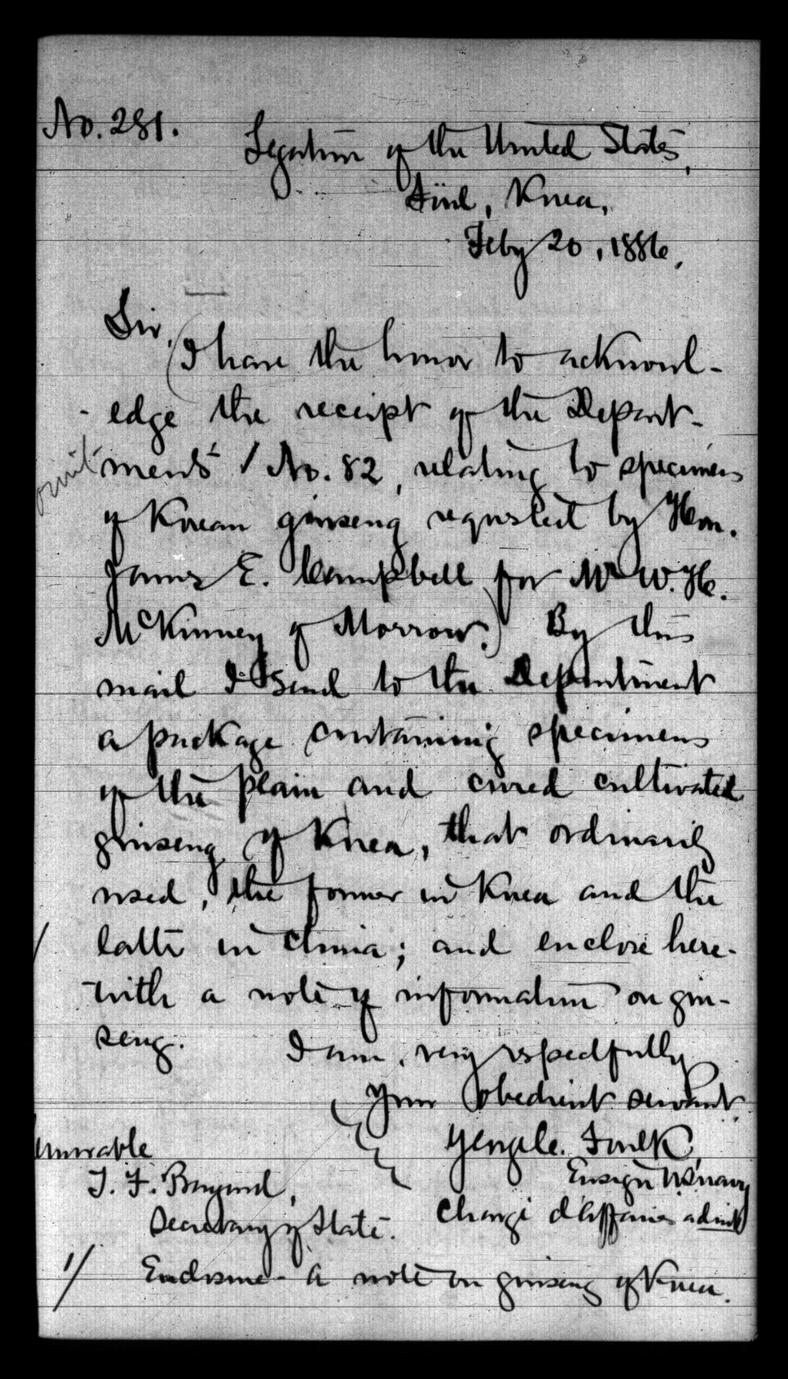 No. 281.
Legation of the United States,
Söul, Korea,
Feby 20, 1886.
Sir,
(I have the honor to acknowl-
edge the receipt of the Depart-
omit
ments' / No. 82, relating to specimens
of Korean ginseng requested by Hon.
James E. Campbell for Mr W. H.
McKinney of Morrow.) By this
mail I send to the Department
a package containing specimens
of the plain and cured cultivated
ginseng of Korea, that ordinarily
used, the former in Korea and the
latter in China; and enclose here-
with a note of information on gin-
seng.
I am, very respectfully
Your obedient servant
George C. Foulk,
Ensign US navy
Chargé d'affaires ad int
Honorable
T. F. Bayard,
Secretary of State.
1/ Enclosure - a note on ginseng of Korea.